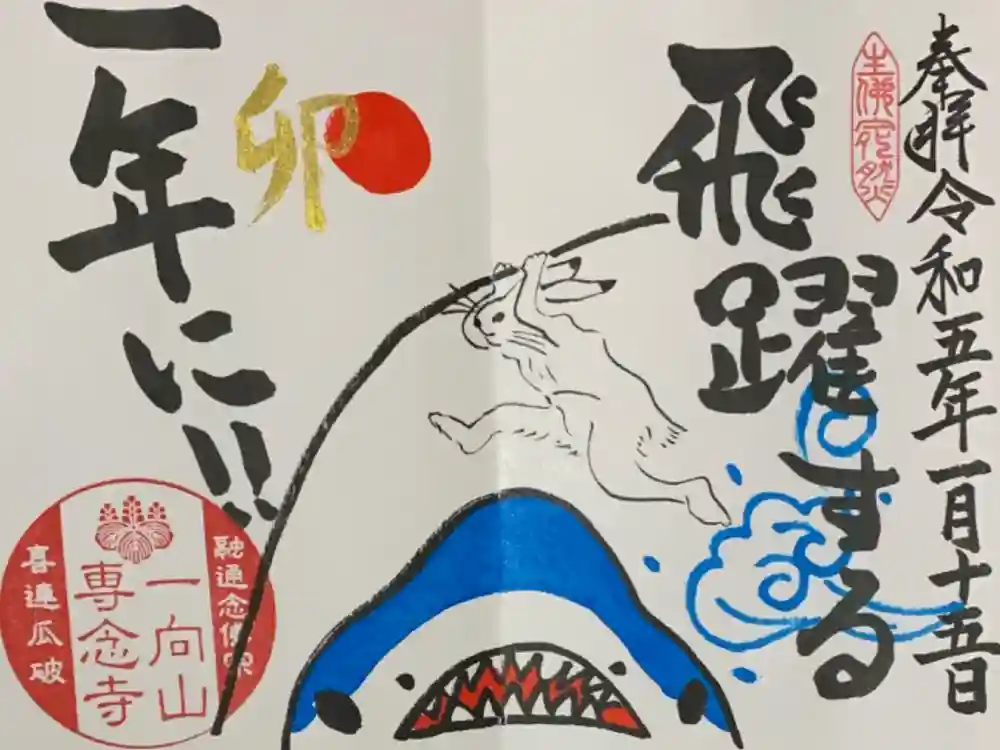 奉拝令和五年一月十五日
生佛宛然
飛躍する
卯
一年に!!
融通念佛宗
一向山
専念寺
喜連瓜破